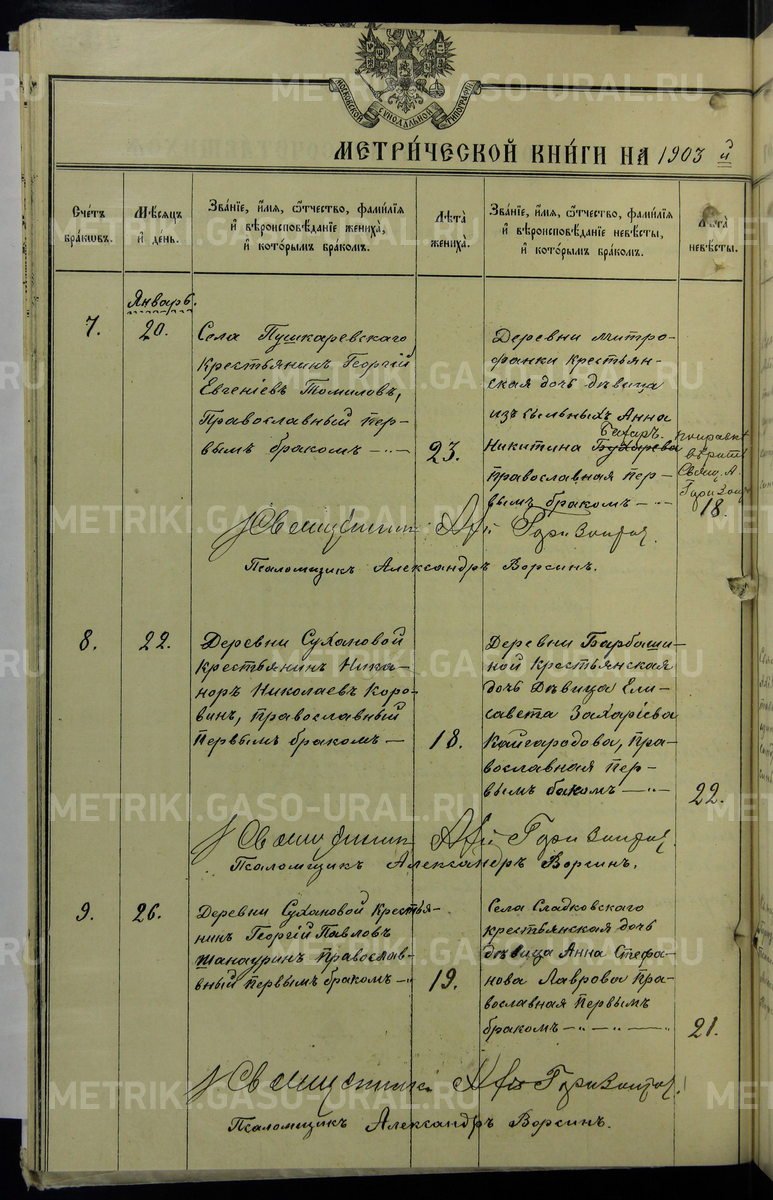 METRIKI.GASO-URAL.RU
МОСКОВСКОЙ СѴНОДАЛЬНОЙ ТИПОГРАФІИ
МЕТРИ́ЧЕСКОЙ КНИ́ГИ НА 1903 й
Сче́тъ бра́кѡвъ.
Мѣ́сяцъ и҆ де́нь.
Зва́нїе, и҆́мя, ѻ҆́тчество, фами́лїя
и҆ вѣроисповѣ́данїе жениха̀,
и҆ кото́рымъ бра́комъ.
Лѣ́та жениха̀.
Зва́нїе, и҆́мя, ѻ҆́тчество, фами́лїя
и҆ вѣроисповѣ́данїе невѣ́сты,
и҆ кото́рымъ бра́комъ.
Лѣ́та невѣ́сты.
Январь.
7.
20.
Села Пушкаревскаго
крестьянинъ Георгій
Евгеніевъ Томиловъ,
Православный пер-
вымъ бракомъ —
23.
Деревни Митро-
фанки крестьян-
ская дочь дѣвица
изъ ссыльныхъ Анна
Никитина Бухарева
православная пер-
вымъ бракомъ —
18.
Священник
Псаломщикъ Александръ Ворсинъ.
8.
22.
Деревни Сухановой
крестьянинъ Ника-
норъ Николаевъ Коро-
винъ, православный
первымъ бракомъ —
18.
Деревни Барбаши-
ной крестьянская
дочь дѣвица Ели-
савета Захаріева
Кайгородова, пра-
вославная пер-
вымъ баком —
22.
Священник
Псаломщикъ Александръ Ворсинъ.
9.
26.
Деревни Сухановой кресть-
янинъ Георгій Павловъ
Шанауринъ православ-
вный первымъ бракомъ —
19.
Села Сладковскаго
крестьянская дочь
дѣвица Анна Стефа-
нова Лаврова пра-
вославная первымъ
бракомъ —
21.
Священник
Псаломщикъ Александръ Ворсинъ.